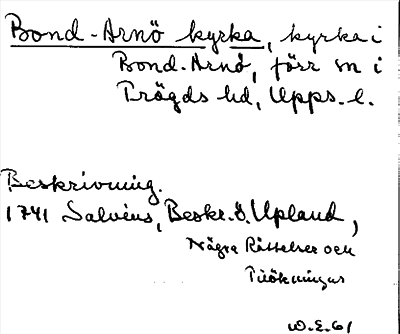 Bond-Arnö kyrka, kyrka i
Bond-Arnö, förr sn i
Trögds hd, Upps. l.
Beskrivning.
1741 Salvius, Beskr. ö. Upland,
Några Rättelser och
Tilökningar
W.E.61